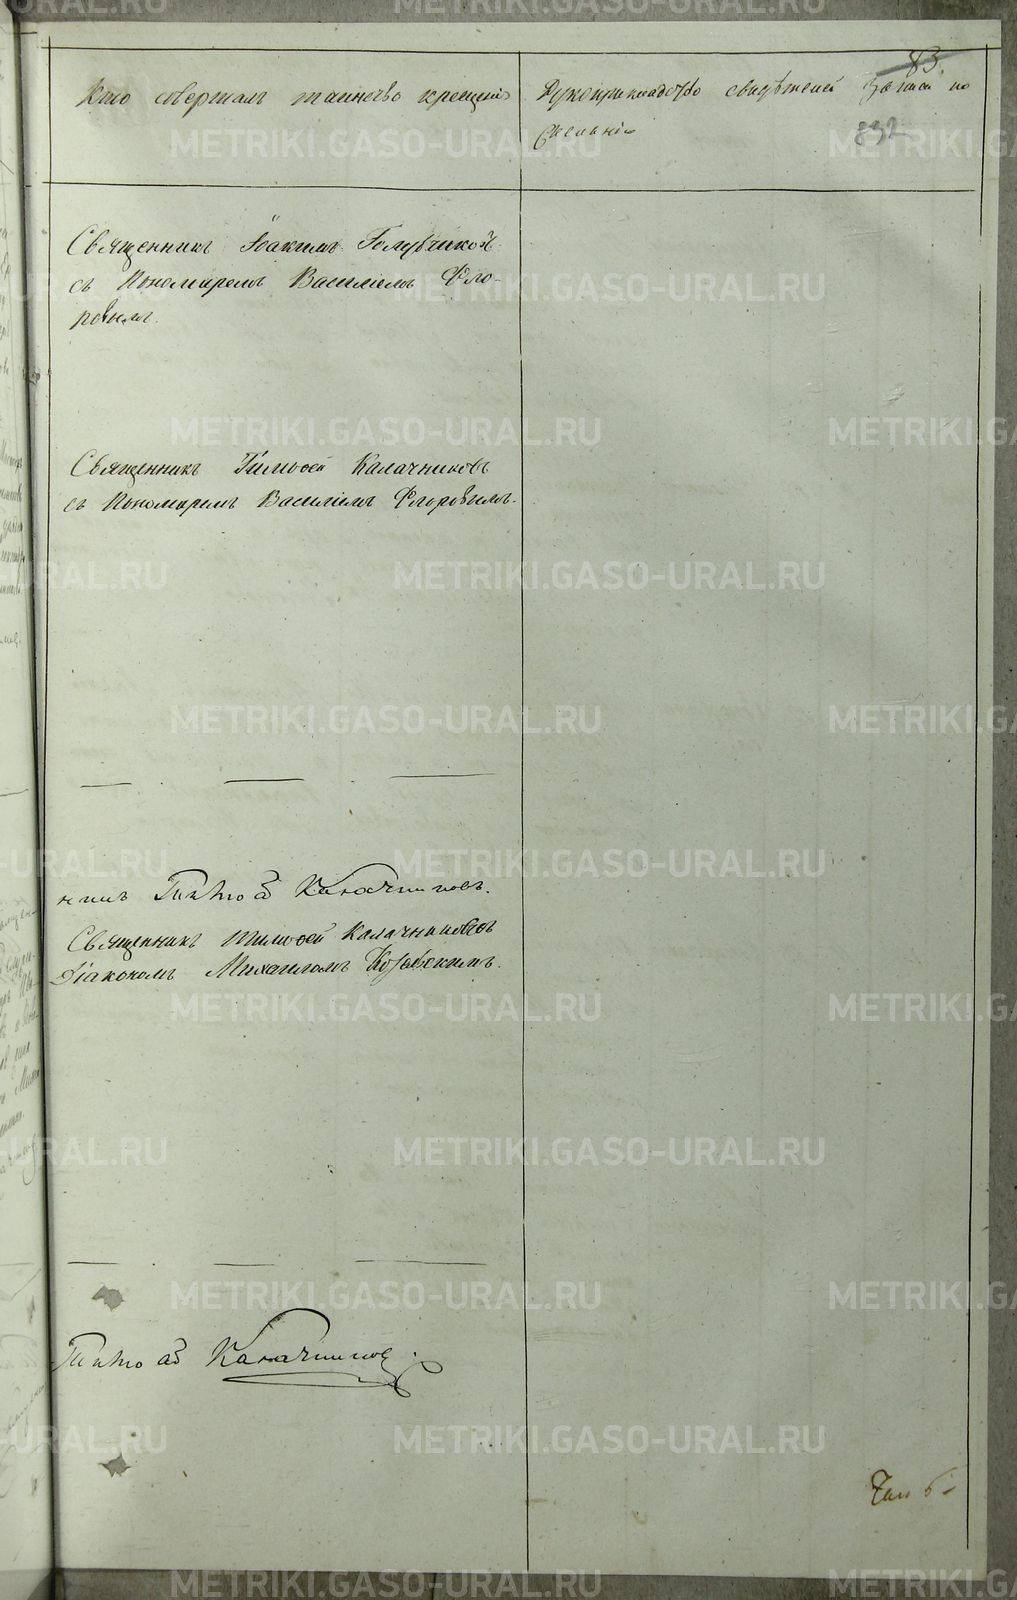 83.
832
Кто совершалъ таинство крещенія
Рукоприкладство свидѣтелей записи по
желанію
Священникъ Іоакимъ
съ Пономаремъ Василіемъ Фло-
ровымъ.
Священникъ Тимоѳей Калачниковъ
съ Пономаремъ Василіемъ Флоровымъ.
никъ Тимоѳей Калачниковъ.
Священникъ Тимоѳей Калачниковъ
Діакономъ Михаиломъ
Тимоѳей Калачниковъ
METRIKI.GASO-URAL.RU